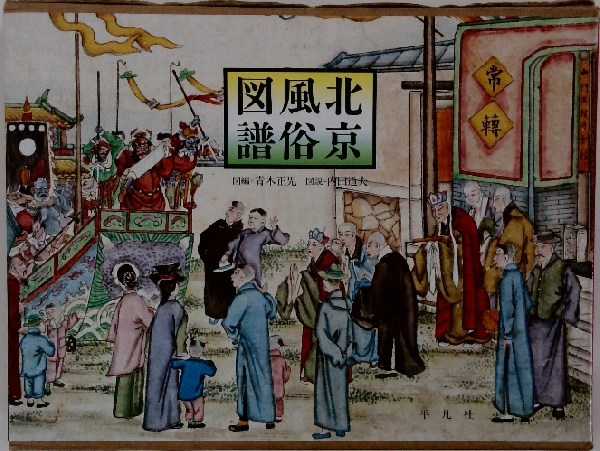 北京
風俗
図譜
図編=青木正児 図説=内田道夫
常
轉
平凡社